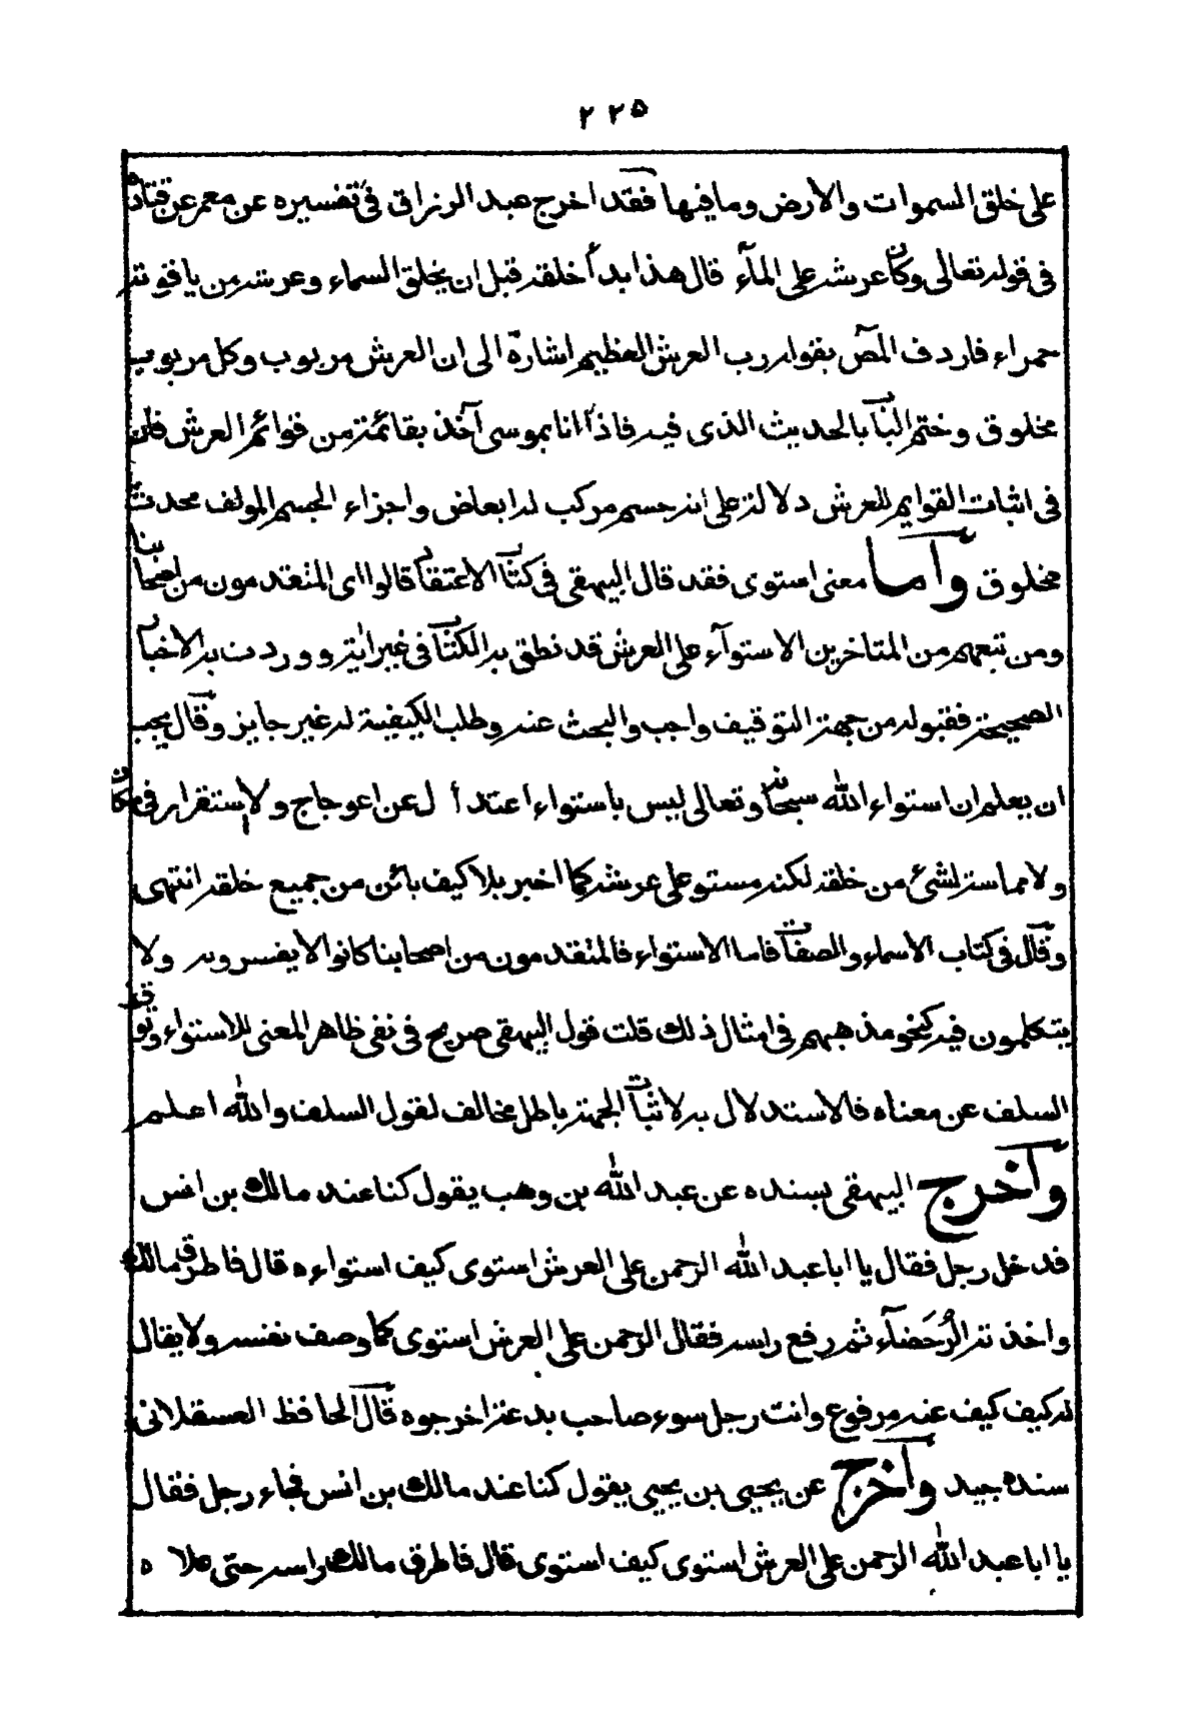 ٢٢٥
على خلق السموات والارض وما فيها فقد اخرج عبد الرزاق فى تفسيره عن معمر عن قتادة
فى قوله تعالى وكان عرشه على المآء قال هذا بدأ خلقه قبل ان يخلق السماء وعرشه من ياقوتة
حمراء فاردف المص بقوله رب العرش العظيم اشارة الى ان العرش مربوب وكل مربوب
مخلوق وختم الباب بالحديث الذى فيه فاذا انا بموسى آخذ بقائمة من قوائم العرش فان
فى اثبات القوايم للعرش دلالة على انه جسم مركب له ابعاض واجزاء الجسم المولف محدث
مخلوق وأما معنى استوى فقد قال البيهقى فى كتاب الاعتقاد قالوا اى المتقدمون من اصحابنا
ومن تبعهم من المتاخرين الاستوآء على العرش قد نطق به الكتاب فى غير اية ووردت به الاخبار
الصحيحة فقبوله من جهة التوقيف واجب والبحث عنه وطلب الكيفية له غير جايز وقال يجب
ان يعلم ان استواء الله سبحانه وتعالى ليس باستواء اعتدأ ل عن اعوجاج ولا استقرار فى مكان
ولا مماسة لشئ من خلقه لكنه مستو على عرشه كما اخبر بلا كيف بائن من جميع خلقه انتهى
وقال فى كتاب الاسماء والصفات فاما الاستواء فالمتقدمون من اصحابنا كانوا لا يفسرونه ولا
يتكلمون فيه كنحو مذهبهم فى امثال ذلك قلت قول البيهقى صريح فى نفى ظاهر المعنى للاستواء وتوقف
السلف عن معناه فالاستدلال به لاثبات الجهة باطل مخالف لقول السلف والله اعلم
وأخرج البيهقى بسنده عن عبد الله بن وهب يقول كنا عند مالك بن انس
فدخل رجل فقال يا ابا عبد الله الرحمن على العرش استوى كيف استواءه قال فاطرق مالك
واخذته الرُحَضآء ثم رفع راسه فقال الرحمن على العرش استوى كما وصف نفسه ولا يقال
له كيف كيف عنه مرفوع وانت رجل سوء صاحب بدعة اخرجوه قال الحافظ العسقلانى
سنده جيد وأخرج عن يحيى بن يحيى يقول كنا عند مالك بن انس فجاء رجل فقال
يا ابا عبد الله الرحمن على العرش استوى كيف استوى قال فاطرق مالك راسه حتى علاه